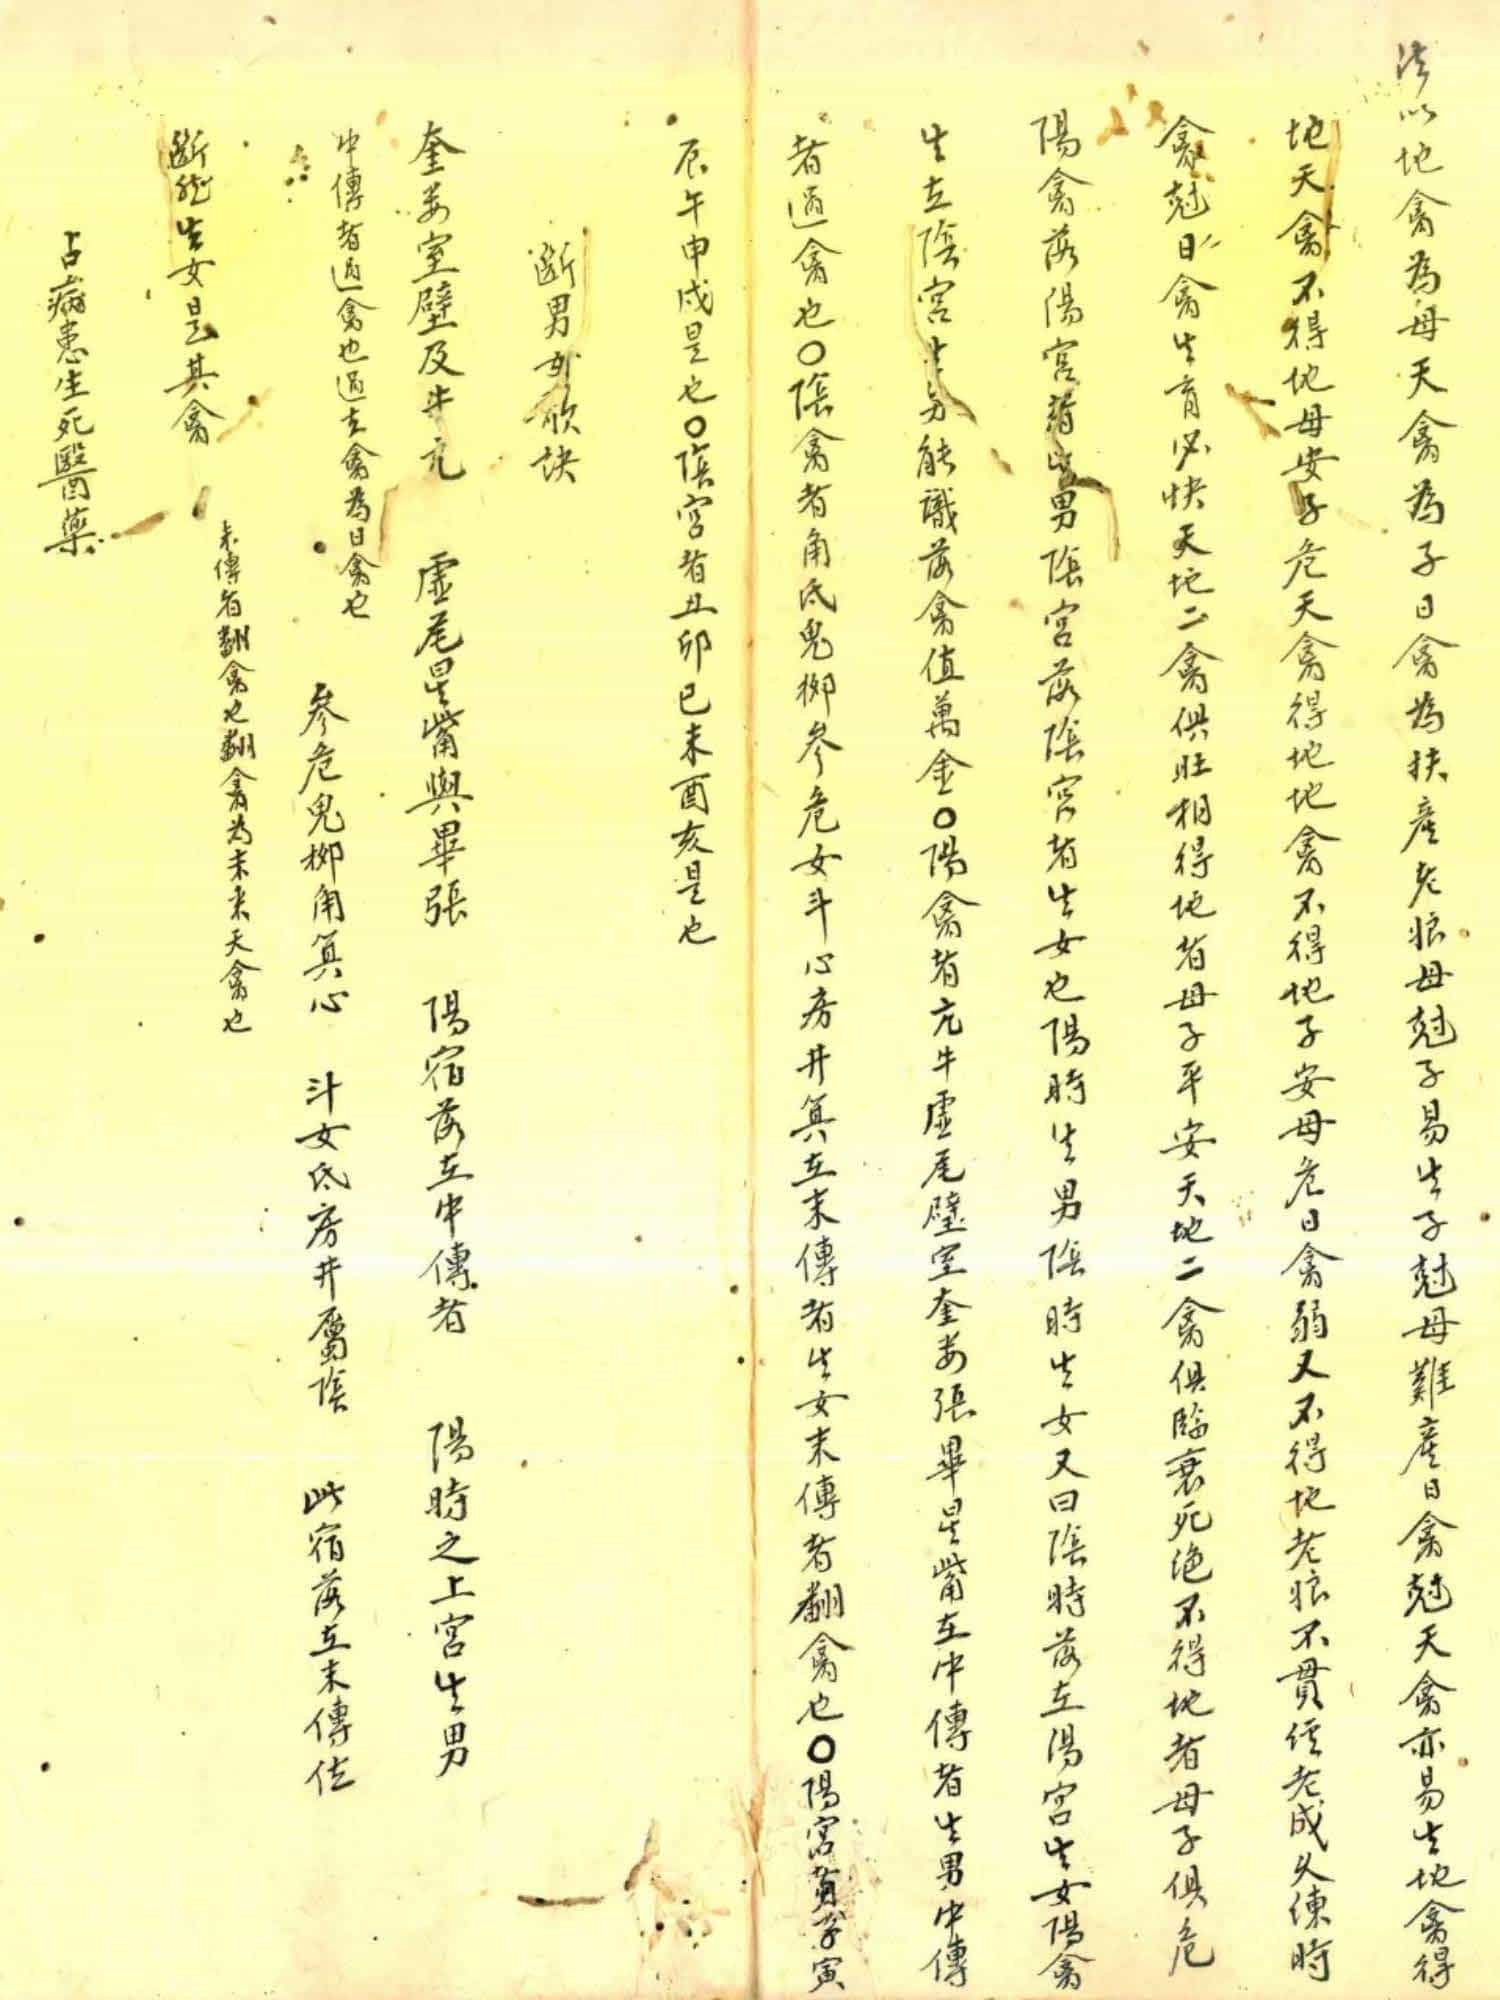 法以地禽為母天禽為子日禽為扶產老娘母尅子易生子尅母難產日禽尅天禽亦易生地禽得
地天禽不得地母安子危天禽得地地禽不得地子安母危日禽弱又不得地老娘不貫經老成久練時
禽尅日禽生育必快天地二禽俱旺相得地者母子平安天地二禽俱臨衰死絶不得地者母子俱危
陽禽落陽宮者生男陰宮落陰宮者生女也陽時生男陰時生女又曰陰時落在陽宮生女陽禽
生在陰宮生男能識落禽值萬金〇陽禽者亢牛虛尾壁室奎婁張畢星觜在中傳者生男中傳
者過禽也〇陰禽者角氐鬼柳參危女斗心房井箕在末傳者生女末傳者翻禽也〇陽宮者子寅
辰午申戌是也〇陰宮者丑卯巳未酉亥是也
斷男女歌訣
奎婁室壁及牛亢 虛尾星觜與畢張 陽宿落在中傳者 陽時之上宮生男
中傳者過禽也過去禽為日禽也
參危鬼柳角箕心 斗女氐房井屬陰 此宿落在末傳位
末傳者翻禽也翻禽為未來天禽也
斷然生女是其禽
占病患生死醫藥